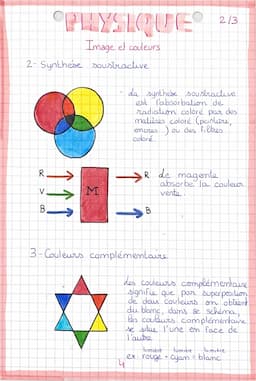 PHYSIQUE
2/3
Image et couleurs
2- Synthèse soustractive
La synthèse soustractive
est l'absorbation de
radiation coloré par des
matières coloré (peinture,
encres...) ou des filtres
coloré.
R
V
B
M
R
B
Le magenta
absorbe la couleur
verte.
3- Couleurs complémentaire
Les couleurs complémentaire
signifie que par superposition
de deux couleurs on obtient
du blanc, dans se schéma,
les couleurs complémentaire
se situ l'une en face de
l'autre
lumière lumière lumière
ex: rouge + cyan = blanc
4